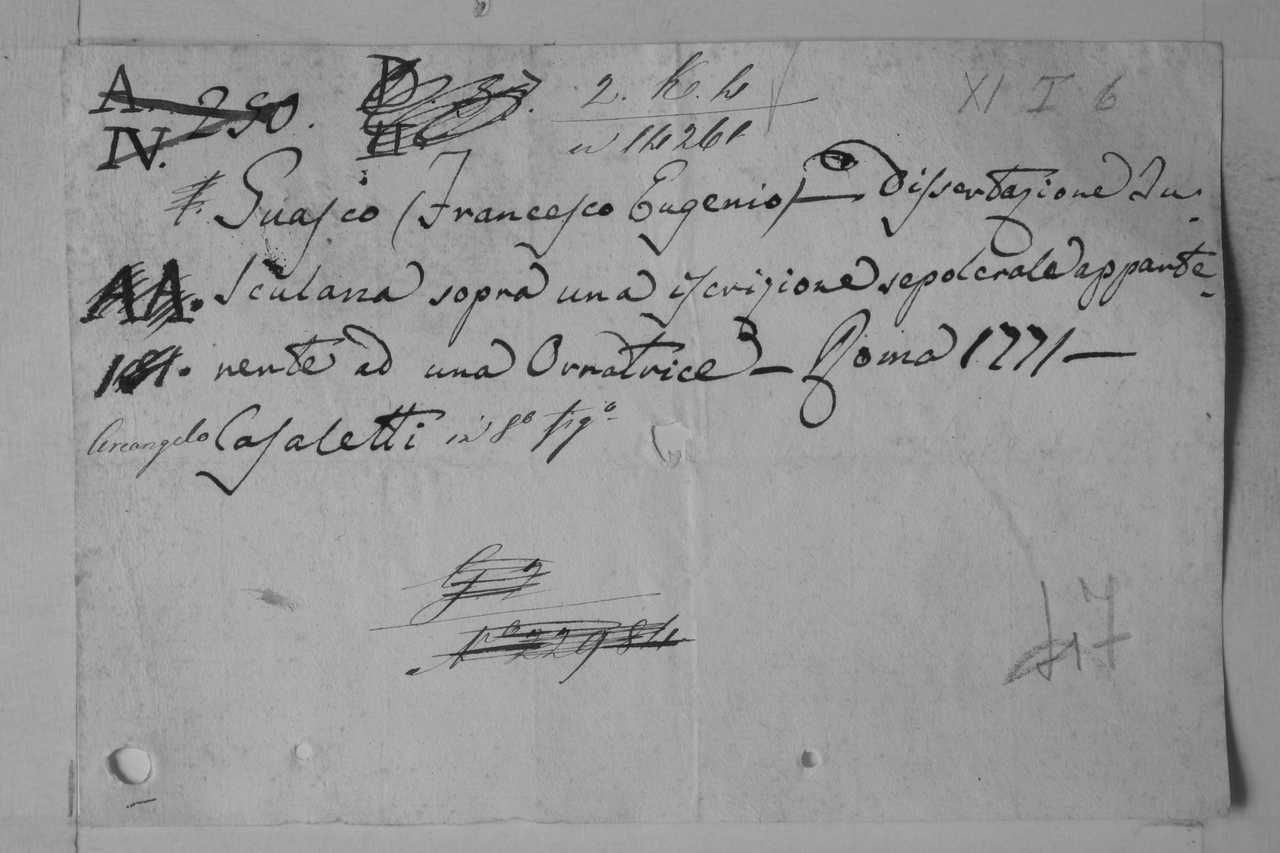 A. 250. D. 33. 2. K. 4 XI I 6
IV. II n 14261
Guasco (Francesco Eugenio) — Dissertazione Tu-
AA. sculana sopra una iscrizione sepolcrale apparte-
nente ad una Ornatrice — Roma 1771 —
Arcangelo Casaletti in 8º figº
G 2
Nº 22984